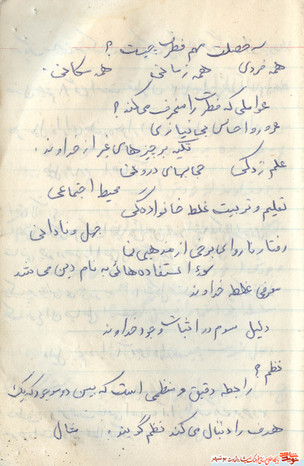 سه خصلت مهم فطرت چیست؟
همه فردی همه زمانی همه مکانی
عواملی که فطرت را منحرف می‌کند؟
غرور و احساس بی نیازی
تکیه بر چیزهای غیر از خداوند.
علم زدگی حجابهای دروغی
محیط اجتماعی
تعلیم و تربیت غلط خانوادگی
جهل و نادانی
رفتار ناروای برخی از مذهبی نما
سوء استفاده‌هائی به نام دین می‌باشد
معرفی غلط خداوند
دلیل سوم در اثبات وجود خداوند
نظم؟
رابطه دقیق و منظمی است که بین دو موجود یک
هدف را دنبال می‌کند نظم گویند. مثال